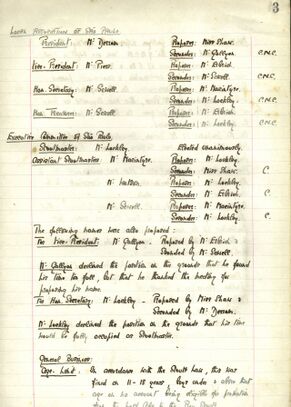 3
Local Association of São Paulo
President Mr Dorman. Proposer: Miss Shaw.
Seconder: Mr Gallyon. C.N.C.
Vice-President Mr Proes. Proposer: Mr
Seconder: Mr Sewell. C.N.C.
Hon. Secretary: Mr Sewell. Proposer: Mr Macintyre.
Seconder: Mr Lockley. C.N.C.
Hon Treasurer: Mr Sewell. Proposer: Mr
Seconder: Mr Lockley. C.N.C.
Executive Committee of São Paulo.
Scoutmaster: Mr Lockley. Elected unanimously.
Assistant Scoutmasters: Mr Macintyre. Proposer: Mr Lockley.
Seconder: Miss Shaw. C.
Mr Proposer: Mr Lockley.
Seconder: Mr Lockley. C.
Mr Sewell. Proposer: Mr Macintyre.
Seconder: Mr Lockley. C.
The following names were also proposed:
For Vice-President: Mr Gallyon. Proposed by Mr
Seconded by Mr Sewell.
Mr Gallyon declined the position on the grounds that he found
his time too full but that he thanked the meeting for
proposing his name.
For Hon. Secretary: Mr Lockley - Proposed by Miss Shaw &
Seconded by Mr Dorman.
Mr Lockley declined the position on the grounds that his time
would be fully occupied as Scoutmaster.
General Business:
Age Limit. In accordance with the Scout Laws, this was
fixed on 11 - 18 years. Boys under & above that
age on no account being eligible for probation